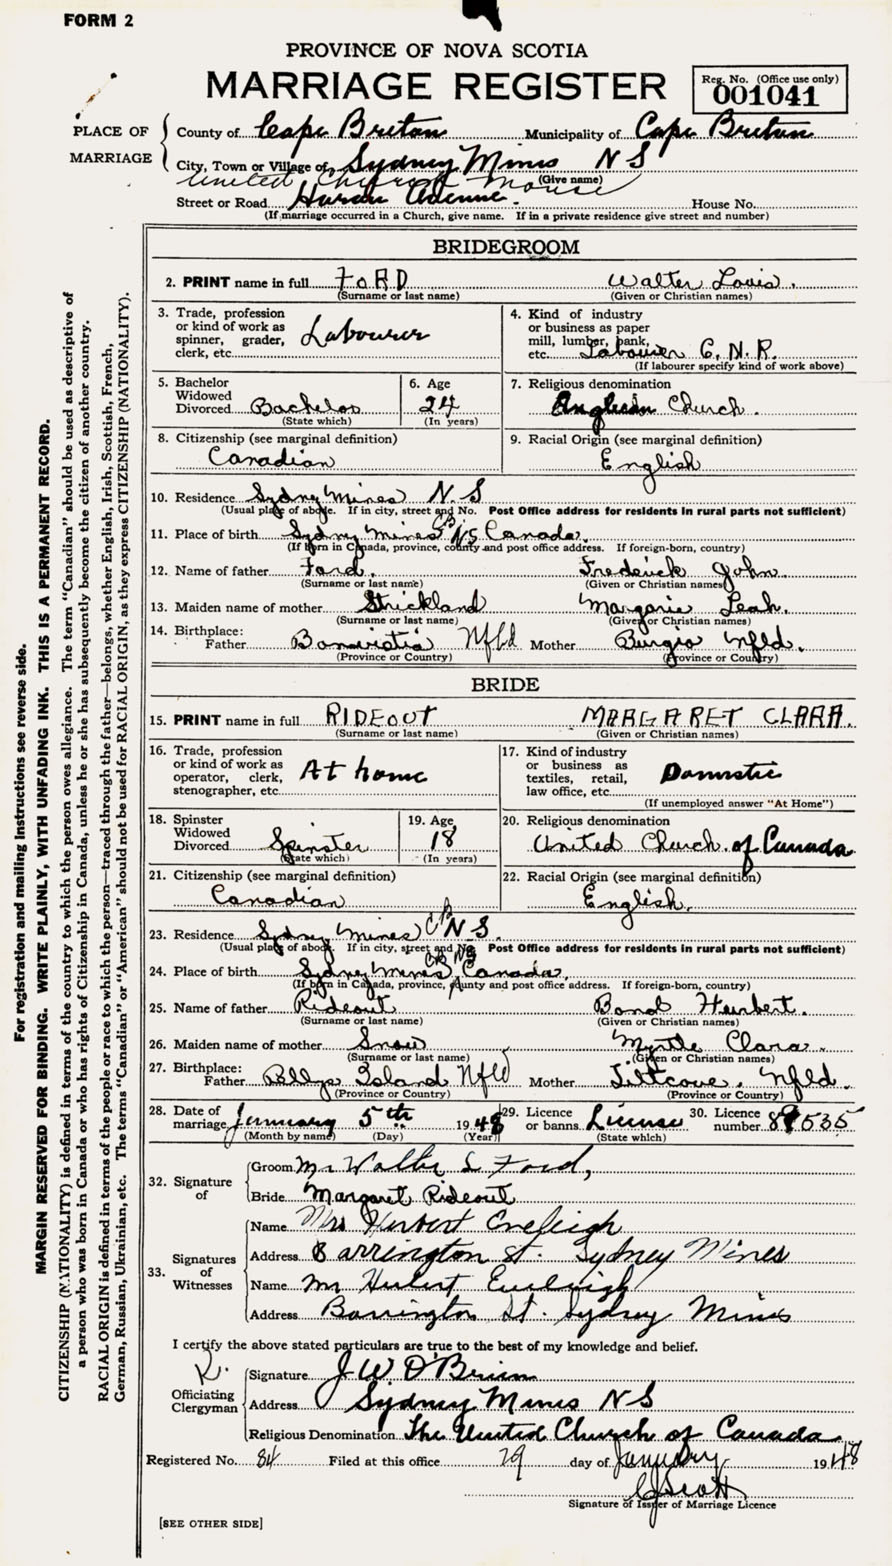 FORM 2
PROVINCE OF NOVA SCOTIA
MARRIAGE REGISTER
Reg. No. (Office use only)
001041
PLACE OF MARRIAGE
County of Cape Breton Municipality of Cape Breton
City, Town or Village of Sydney Mines N S
(Give name)
United Church Manse
Street or Road Avenue. House No.
(If marriage occurred in a Church, give name. If in a private residence give street and number)
BRIDEGROOM
2. PRINT name in full FORD Walter Louis.
(Surname or last name) (Given or Christian names)
3. Trade, profession or kind of work as spinner, grader, clerk, etc. Labourer
4. Kind of industry or business as paper mill, lumber, bank, etc. Labourer C.N.R.
(If labourer specify kind of work above)
5. Bachelor Widowed Divorced Bachelor
(State which)
6. Age 24
(In years)
7. Religious denomination
Anglican Church.
8. Citizenship (see marginal definition)
Canadian
9. Racial Origin (see marginal definition)
English
10. Residence Sydney Mines N.S
(Usual place of above. If in city, street and No. Post Office address for residents in rural parts not sufficient)
11. Place of birth Sydney Mines CB NS Canada.
(If born in Canada, province, county and post office address. If foreign-born, country)
12. Name of father Ford. Frederick John.
(Surname or last name) (Given or Christian names)
13. Maiden name of mother Strickland Margorie Leah.
(Surname or last name) (Given or Christian names)
14. Birthplace:
Father Bonavista Nfld Mother Burgio Nfld.
(Province or Country) (Province or Country)
BRIDE
15. PRINT name in full RIDEOUT MARGARET CLARA.
(Surname or last name) (Given or Christian names)
16. Trade, profession or kind of work as operator, clerk, stenographer, etc. At home
17. Kind of industry or business as textiles, retail, law office, etc. Domestic
(If unemployed answer "At Home")
18. Spinster Widowed Divorced Spinster
(State which)
19. Age 18
(In years)
20. Religious denomination
United Church of Canada
21. Citizenship (see marginal definition)
Canadian
22. Racial Origin (see marginal definition)
English.
23. Residence Sydney Mines CB N.S.
(Usual place of above. If in city, street and No. Post Office address for residents in rural parts not sufficient)
24. Place of birth Sydney Mines CB NS Canada.
(If born in Canada, province, county and post office address. If foreign-born, country)
25. Name of father Rideout Bond Herbert.
(Surname or last name) (Given or Christian names)
26. Maiden name of mother Snow Myrtle Clara.
(Surname or last name) (Given or Christian names)
27. Birthplace:
Father Pellys Island Nfld Mother Tiltcove. Nfld.
(Province or Country) (Province or Country)
28. Date of marriage January 5th 1948
(Month by name) (Day) (Year)
29. Licence or banns License
(State which)
30. Licence number 89535
32. Signature of
Groom Mr Walter L Ford,
Bride Margaret Rideout
33. Signatures of Witnesses
Name Mrs Herbert Eveleigh
Address Barrington St. Sydney Mines
Name Mr Hubert Eveleigh
Address Barrington St. Sydney Mines
I certify the above stated particulars are true to the best of my knowledge and belief.
R.
Officiating Clergyman
Signature J W O'Brien
Address Sydney Mines N S
Religious Denomination The United Church of Canada
Registered No. 84 Filed at this office 29 day of January 1948
Scott
Signature of Issuer of Marriage Licence
[SEE OTHER SIDE]
For registration and mailing instructions see reverse side.
MARGIN RESERVED FOR BINDING. WRITE PLAINLY, WITH UNFADING INK. THIS IS A PERMANENT RECORD.
CITIZENSHIP (NATIONALITY) is defined in terms of the country to which the person owes allegiance. The term "Canadian" should be used as descriptive of
a person who was born in Canada or who has rights of Citizenship in Canada, unless he or she has subsequently become the citizen of another country.
RACIAL ORIGIN is defined in terms of the people or race to which the person—traced through the father—belongs, whether English, Irish, Scottish, French,
German, Russian, Ukrainian, etc. The terms "Canadian" or "American" should not be used for RACIAL ORIGIN, as they express CITIZENSHIP (NATIONALITY).